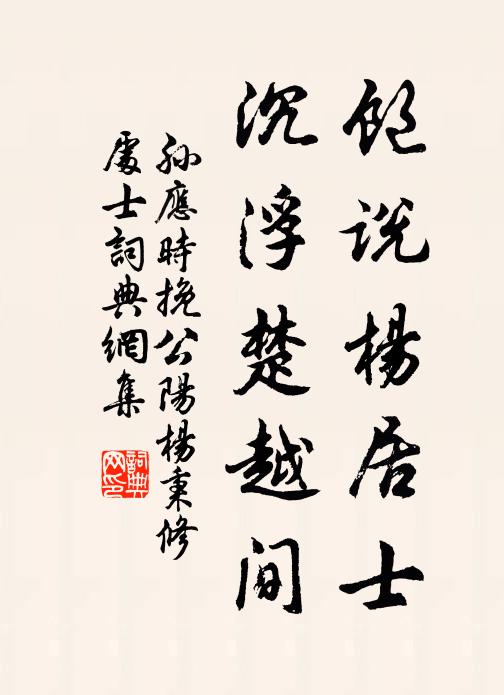 飽說楊居士
沉浮楚越間
孫應時挽公陽楊秉修
處士詞典網集
詞典网印